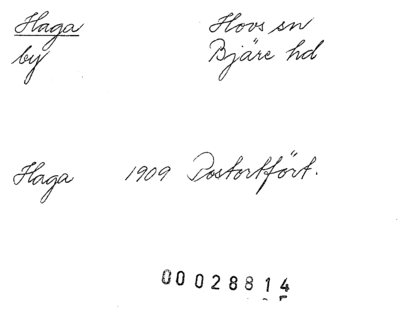 Haga Hovs sn
by Bjäre hd
Haga 1909 Postortfört.
00028814